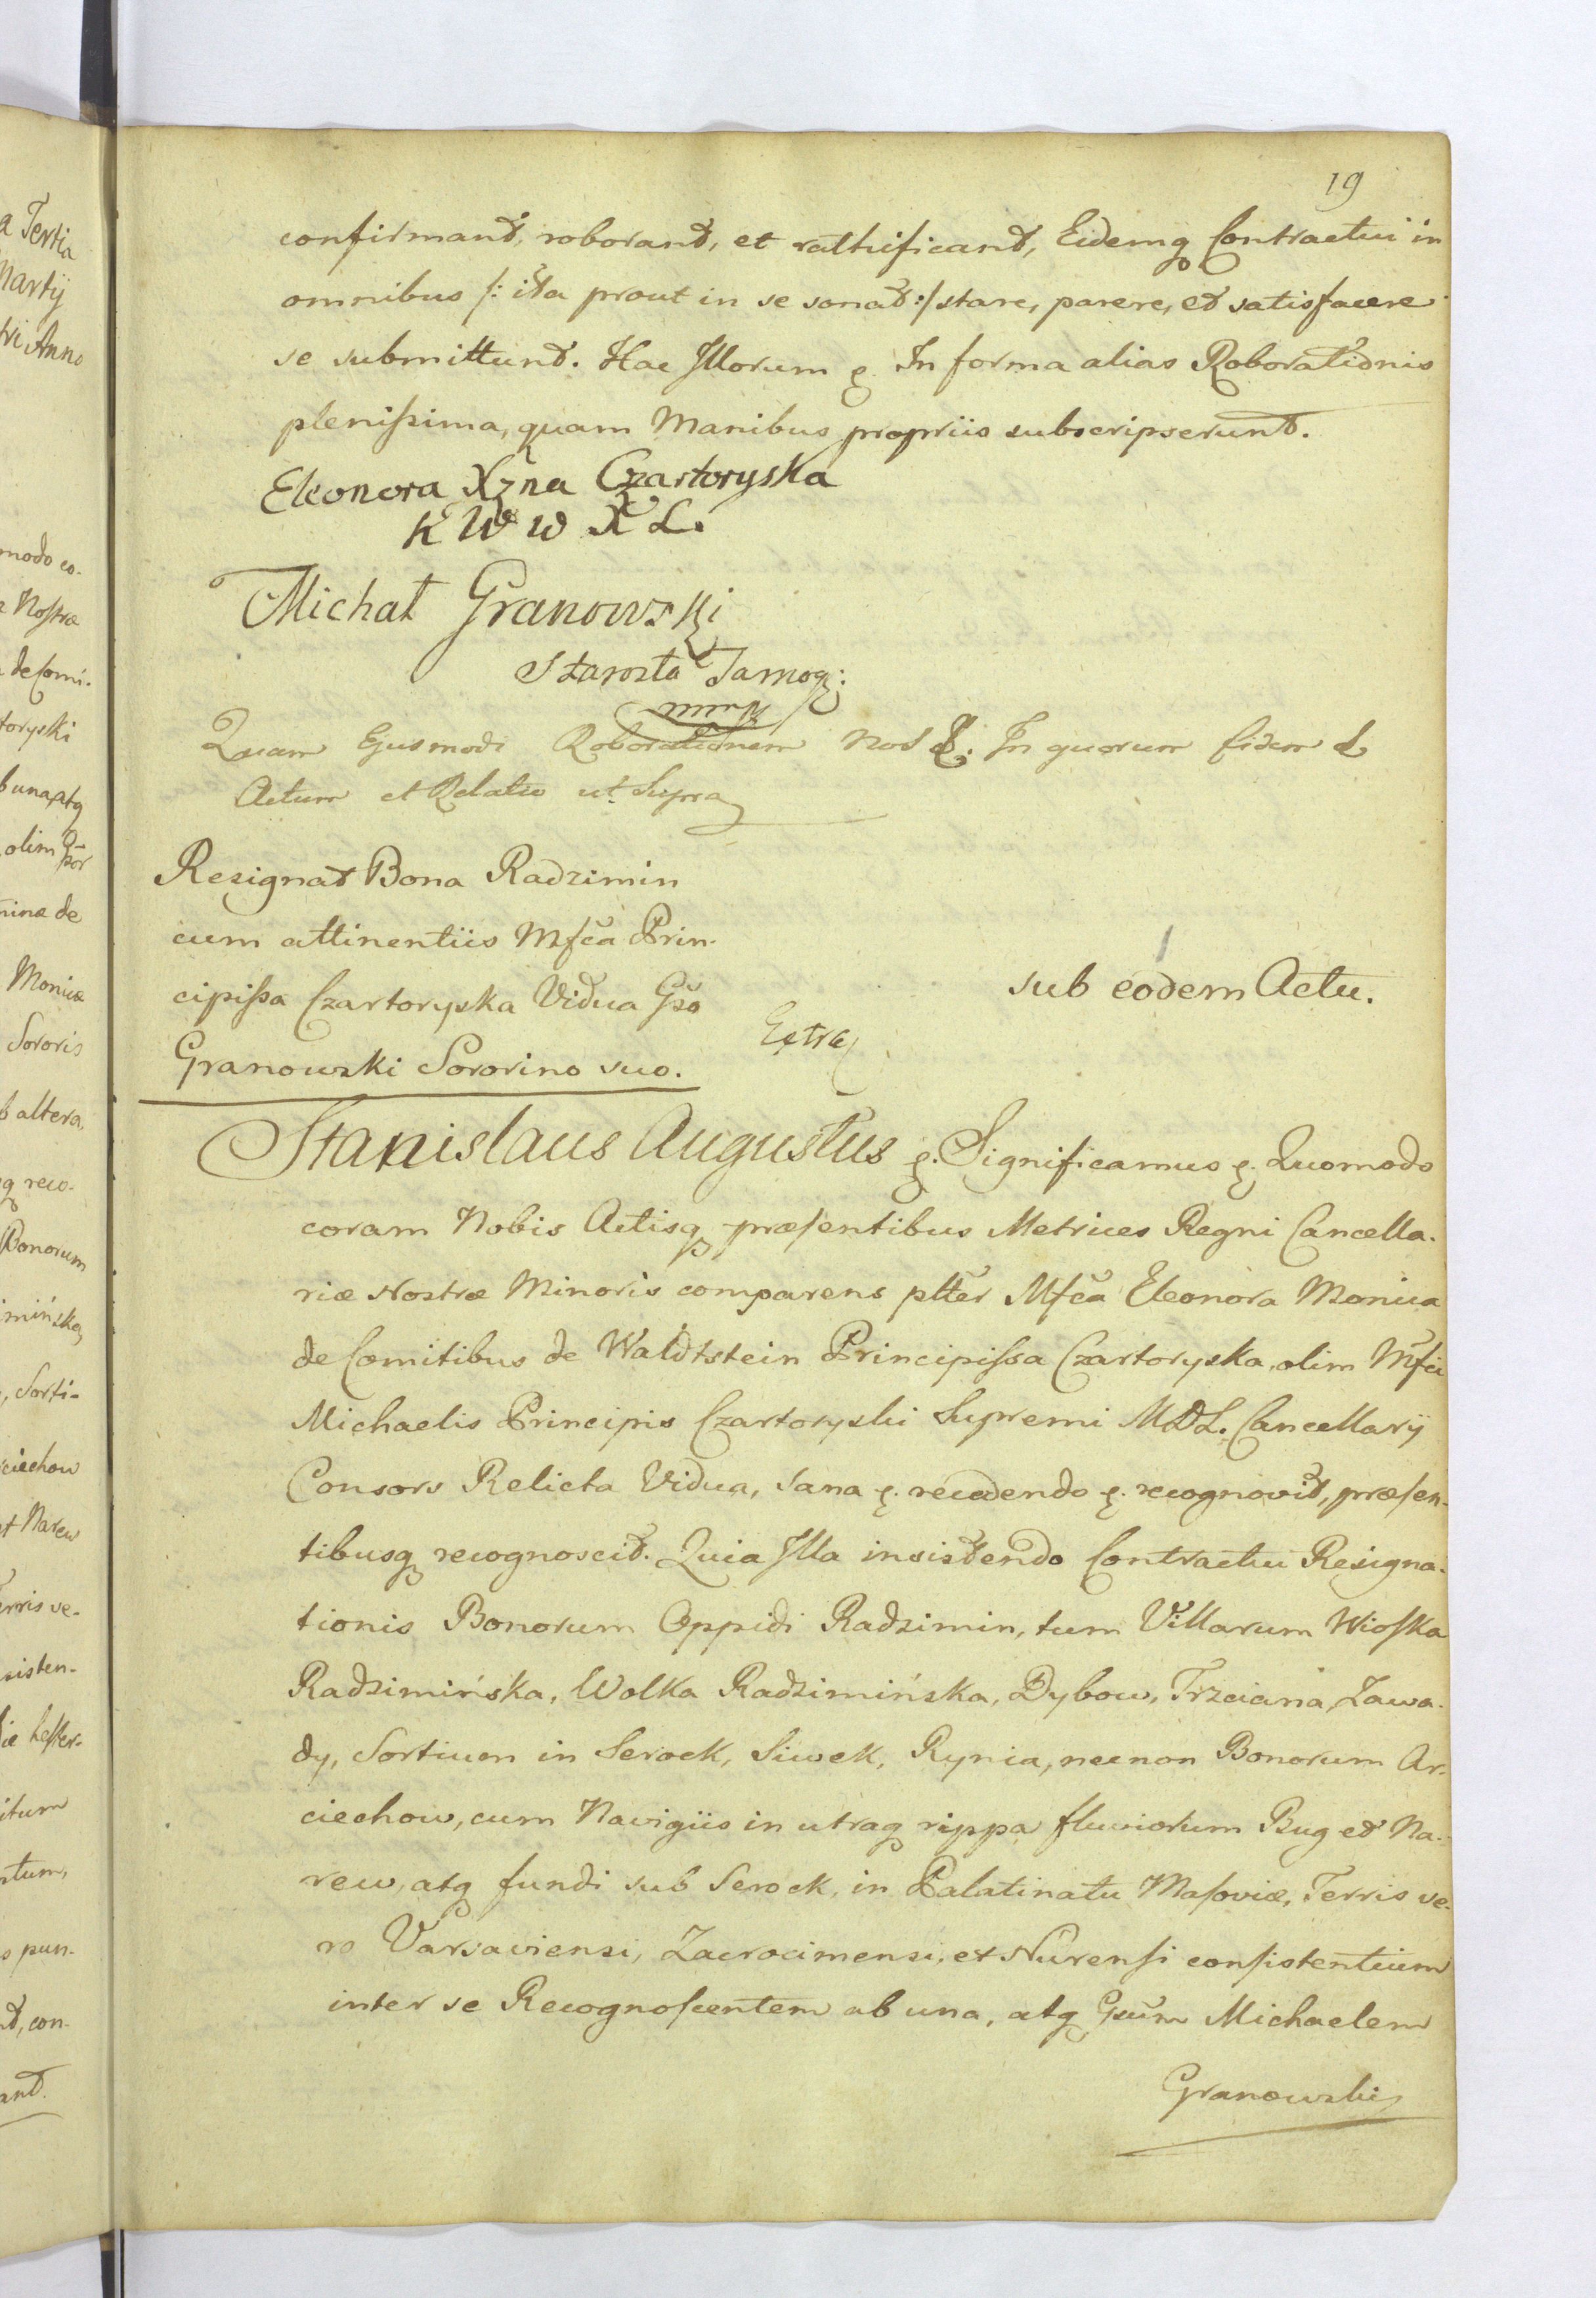 19
confirmant, roborant, et ratthificant, Eidemq Contractui in
omnibus /: ita prout in se sonat :/ stare, parere, et satisfacere
se submittunt. Hac Illorum &. In forma alias Roborationis
plenissima, quam Manibus propriis subscripserunt.
Eleonora Xzna Czartoryska
K W w X L.
Michał Granowski
Starosta Tarnog:
mmp
Quam Ejusmodi Roborationem Nos &. In quorum fidem &
Actum et Relatio ut Supra
Resignat Bona Radzimin
cum attinentiis Mfca Prin-
cipissa Czartoryska Vidua Gso
Granowski Sororino suo.
Extra
sub eodem Actu.
Stanislaus Augustus &. Significamus &. Quomodo
coram Nobis Actisq præsentibus Metrices Regni Cancella-
riæ Nostræ Minoris comparens pltter Mfca Eleonora Monica
de Comitibus de Waldtstein Principissa Czartoryska, olim Mfci
Michaelis Principis Czartoryski Supremi MDL. Cancellarij
Consors Relicta Vidua, sana &. recedendo &. recognovit, præsen-
tibusq recognoscit. Quia Illa insistendo Contractui Resigna-
tionis Bonorum Oppidi Radzimin, tum Villarum Wioska
Radzimińska, Wolka Radzimińska, Dybow, Trzciana, Zawa-
dy, Sortium in Serock, Siwek, Rynia, necnon Bonorum Ar-
ciechow, cum Navigiis in utraq rippa fluviorum Bug et Na-
rew, atq fundi sub Serock, in Palatinatu Masoviæ, Terris ve-
ro Varsaviensi, Zacrocimensi, et Nurensi consistentium
inter se Recognoscentem ab una, atq Gsum Michaelem
Granowski